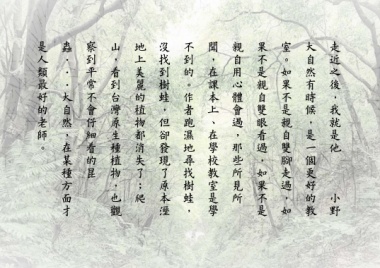 走近之後，我就是他　　小野
大自然有時候，是一個更好的教
室。如果不是親自雙腳走過，如
果不是親自雙眼看過，如果不是
親自用心體會過，那些所見所
聞，在課本上、在學校教室是學
不到的。作者跑濕地尋找樹蛙，
沒找到樹蛙，但卻發現了原本溼
地上美麗的植物都消失了；爬
山，看到台灣原生種植物，也觀
察到平常不會仔細看的昆
蟲...大自然，在某種方面才
是人類最好的老師。